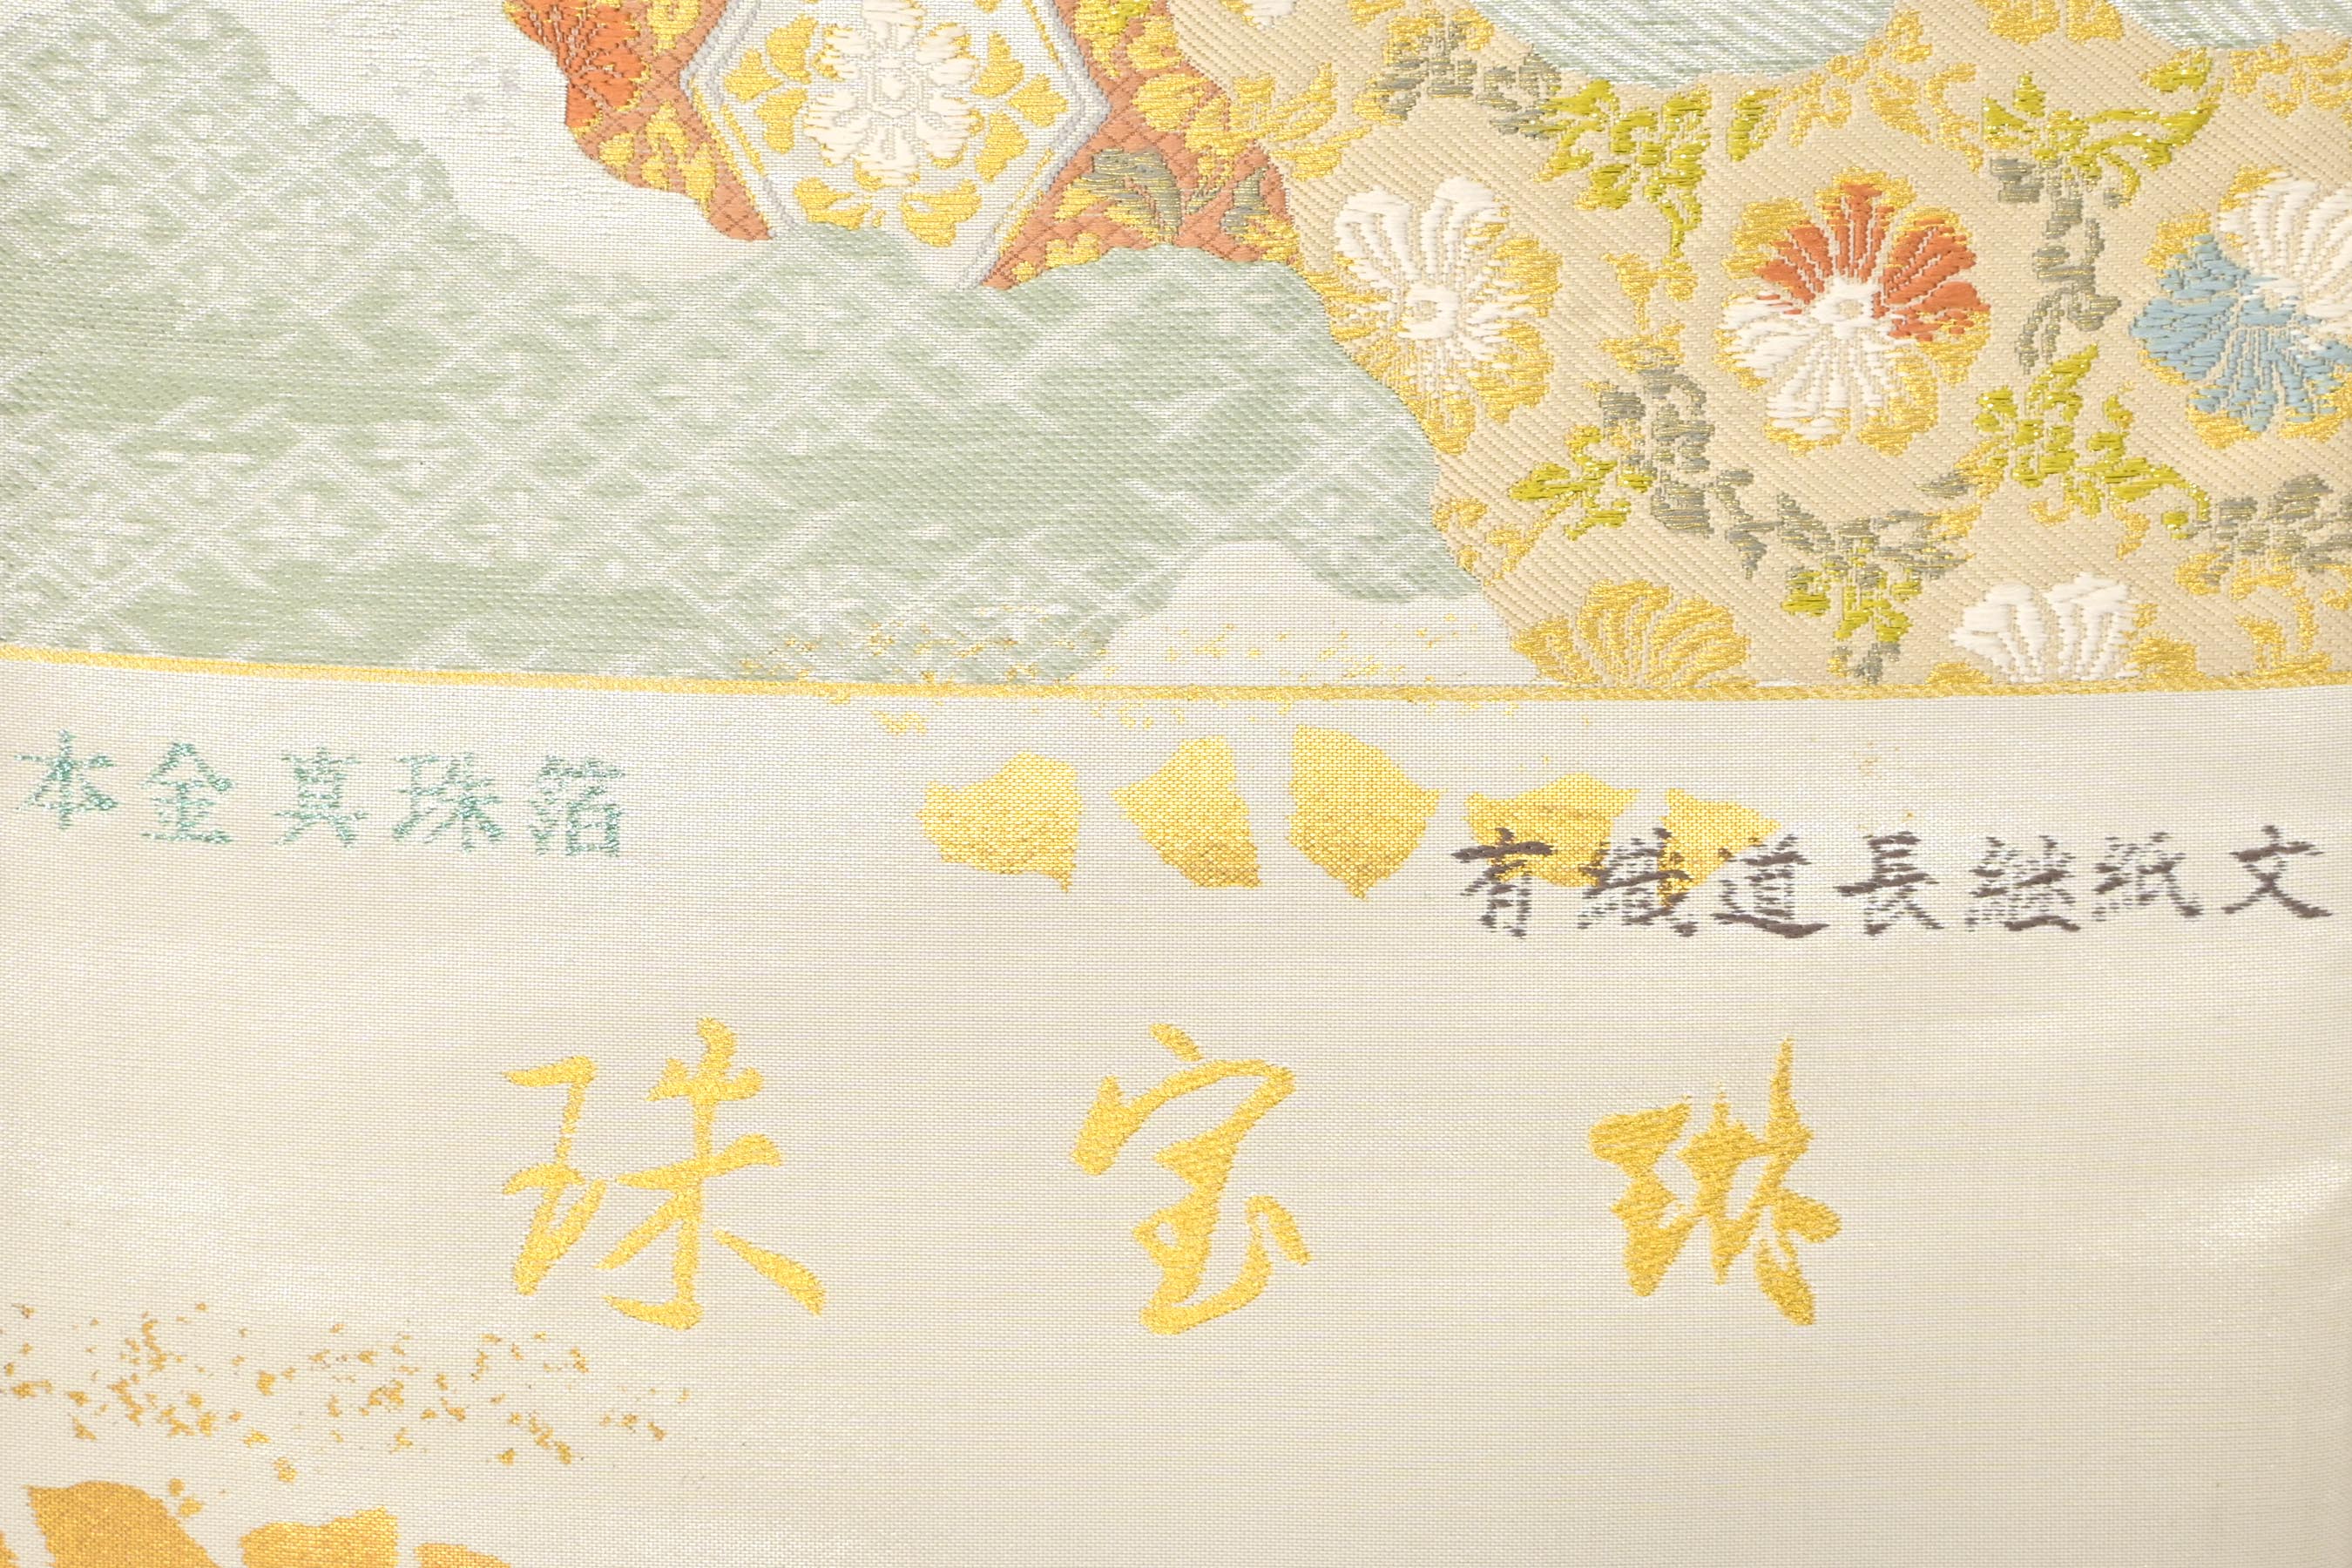 本金真珠箔
有織道長継紙文
珠宝琳